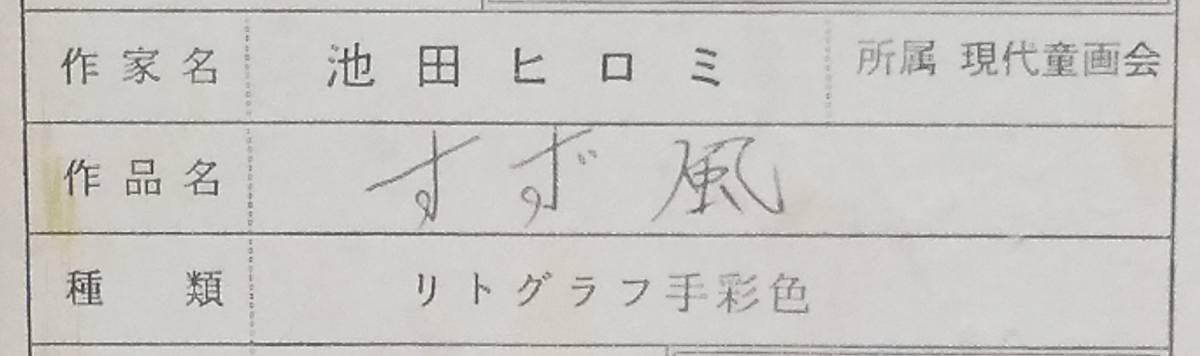 作家名 池田ヒロミ 所属 現代童画会
作品名 すず風
種類 リトグラフ手彩色